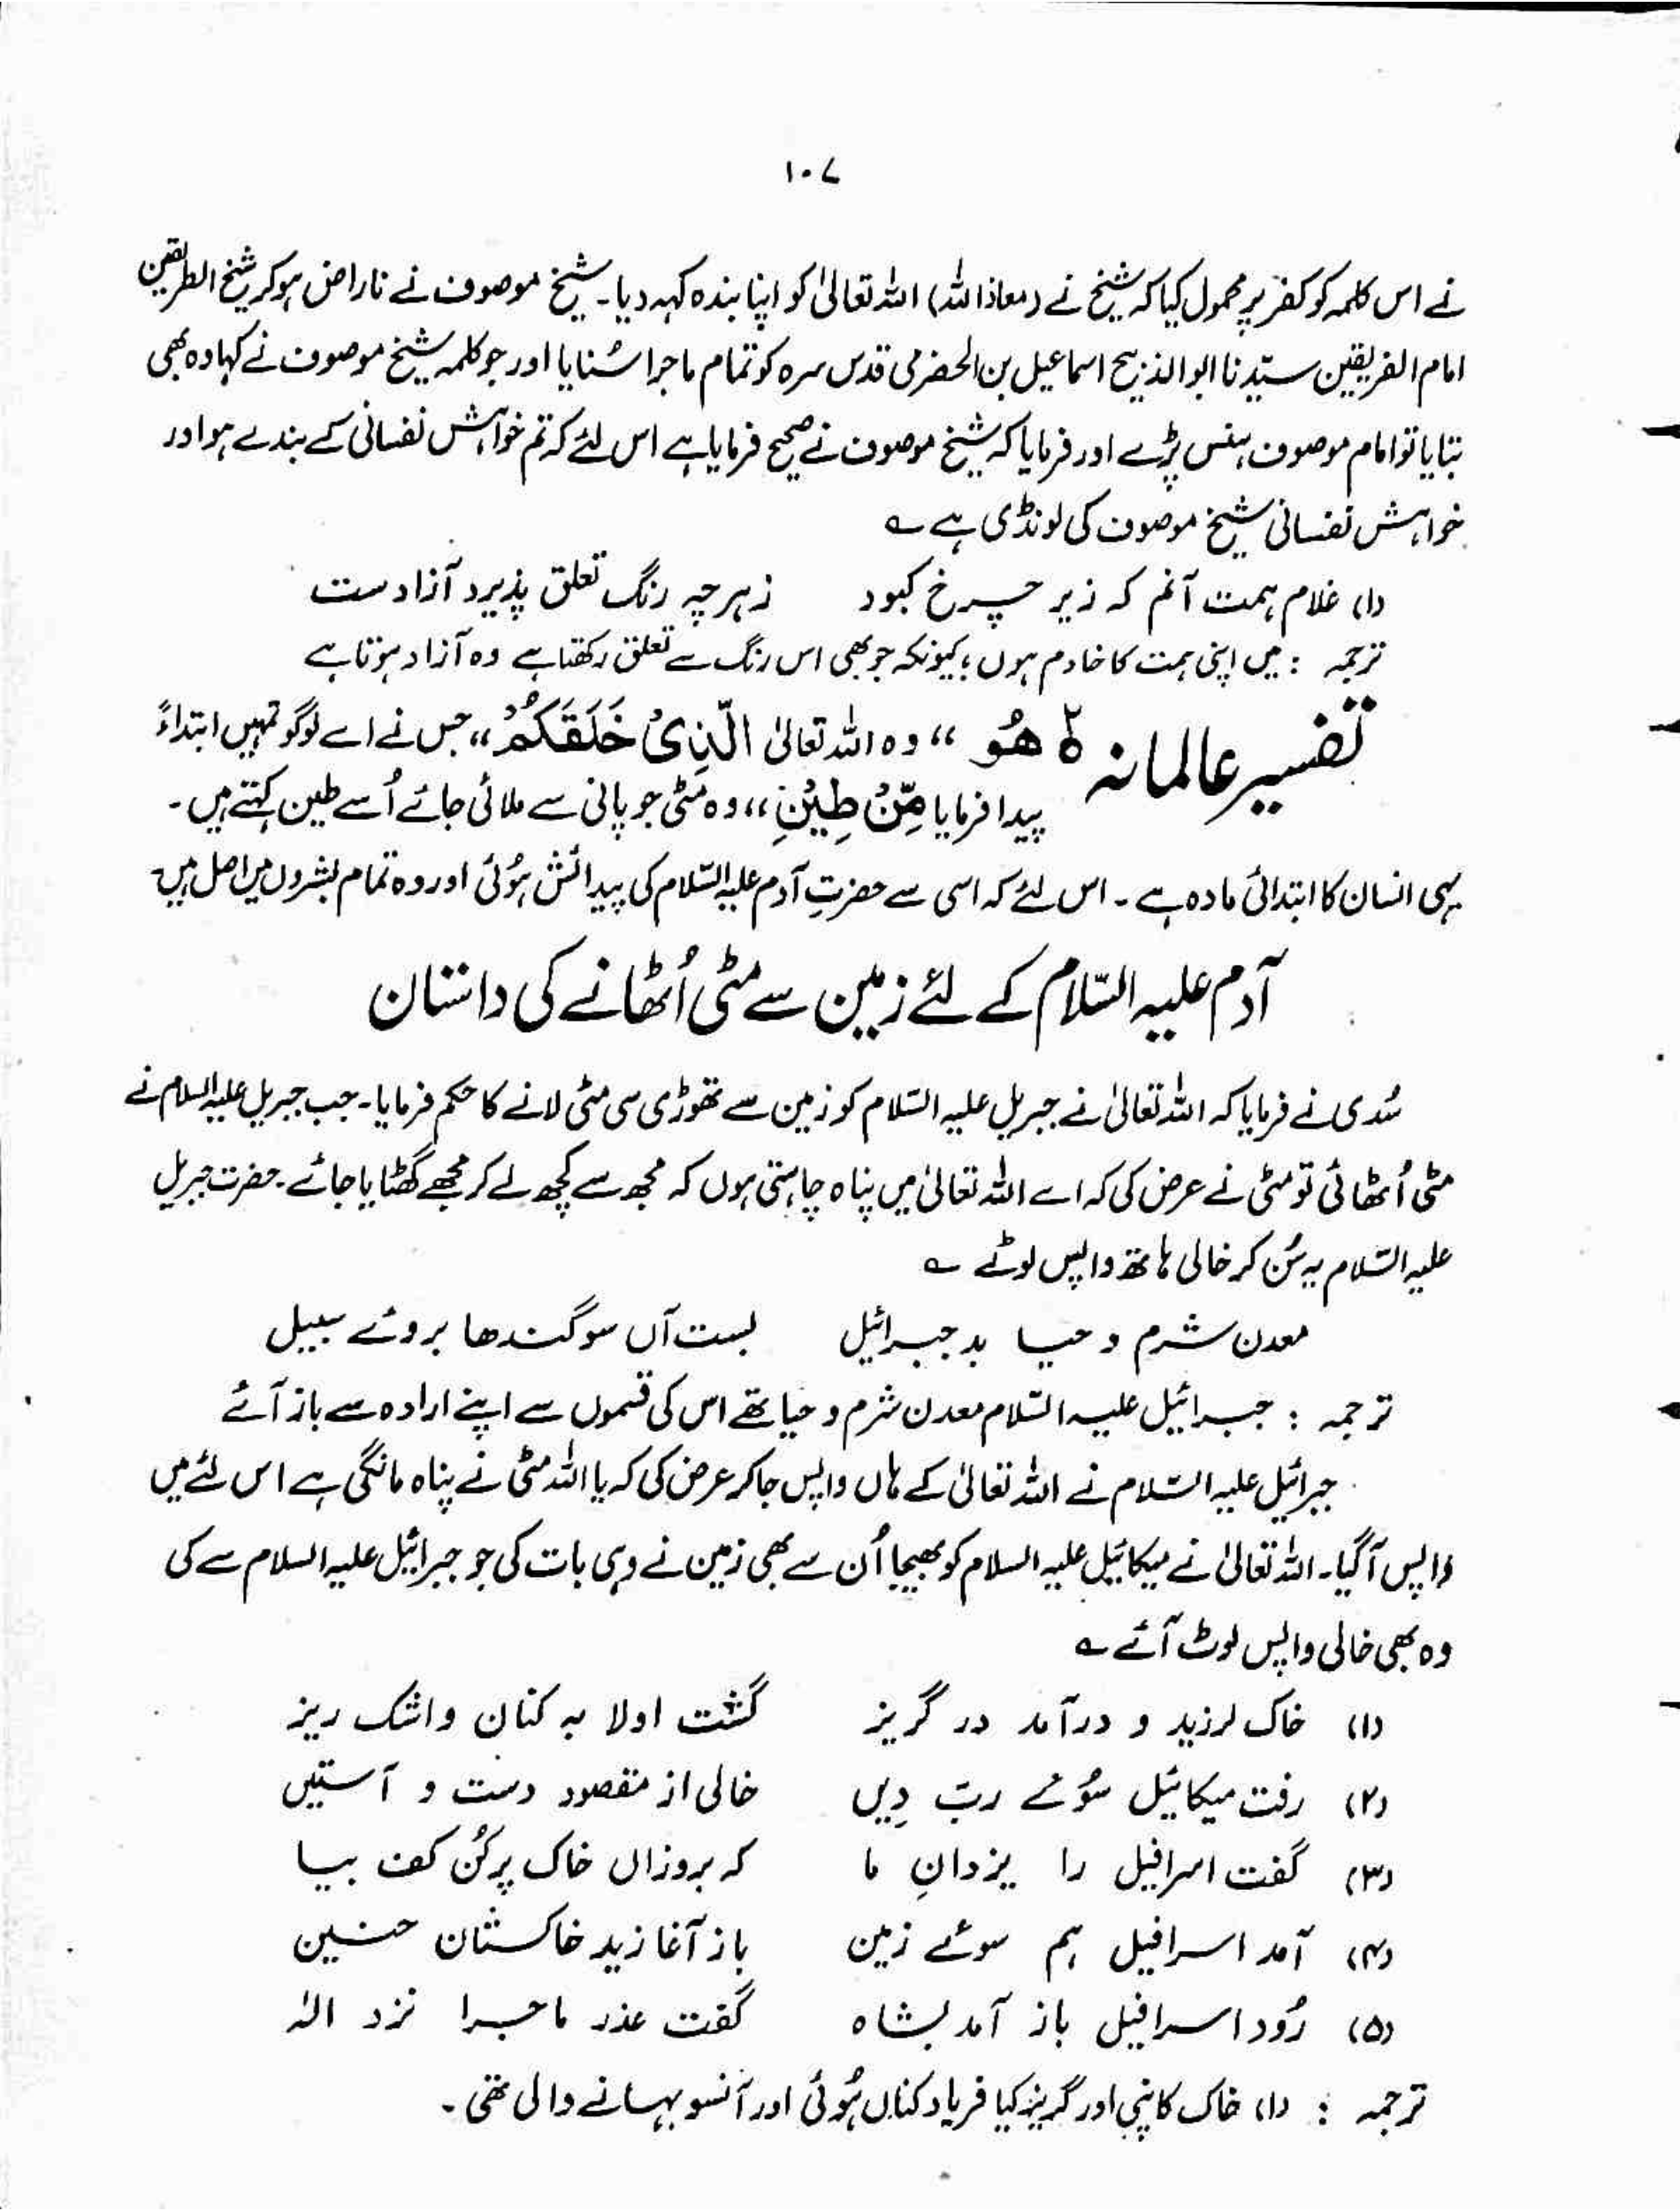 ۱۰۷
نے اس کلمہ کو کفر پر محمول کیا کہ شیخ نے (معاذ اللہ) اللہ تعالیٰ کو اپنا بندہ کہہ دیا۔ شیخ موصوف نے ناراض ہو کر شیخ الطریقین
امام الفریقین سیّدنا ابو الذبیح اسماعیل بن الحضرمی قدس سرہ کو تمام ماجرا سُنایا اور جو کلمہ شیخ موصوف نے کہا وہ بھی
بتایا تو امام موصوف ہنس پڑے اور فرمایا کہ شیخ موصوف نے صحیح فرمایا ہے اس لئے کہ تم خواہش نفسانی کے بندے ہو اور
خواہش نفسانی شیخ موصوف کی لونڈی ہے ؎
(۱) غلام ہمت آنم کہ زیر چرخ کبود زہر چہ رنگ تعلق پذیرد آزادست
ترجمہ : میں اپنی ہمت کا خادم ہوں ؛ کیونکہ جو بھی اس رنگ سے تعلق رکھتا ہے وہ آزاد ہوتا ہے
تفسیر عالمانہ ھُوَ ‘‘ وہ اللہ تعالیٰ الَّذِیْ خَلَقَکُمْ ’’ جس نے اے لوگو تمہیں ابتداءً
پیدا فرمایا مِّنْ طِیْنٍ ’’ وہ مٹی جو پانی سے ملائی جائے اُسے طین کہتے ہیں۔
یہی انسان کا ابتدائی مادہ ہے۔ اس لئے کہ اسی سے حضرتِ آدم علیہ السّلام کی پیدائش ہُوئی اور وہ تمام بشروں میں اصل ہیں۔
آدم علیہ السّلام کے لئے زمین سے مٹی اُٹھانے کی داستان
سُدی نے فرمایا کہ اللہ تعالیٰ نے جبریل علیہ السّلام کو زمین سے تھوڑی سی مٹی لانے کا حکم فرمایا۔ جب جبریل علیہ السلام نے
مٹی اُٹھائی تو مٹی نے عرض کی کہ اے اللہ تعالیٰ میں پناہ چاہتی ہوں کہ مجھ سے کچھ لے کر مجھے گھٹایا جائے۔ حضرت جبریل
علیہ السّلام یہ سُن کر خالی ہاتھ واپس لوٹے ؎
معدن شرم و حیا بد جبرائیل بست آں سوگندھا بروئے سبیل
ترجمہ : جبرائیل علیہ السّلام معدن شرم و حیا تھے اس کی قسموں سے اپنے ارادہ سے باز آئے
جبرائیل علیہ السّلام نے اللہ تعالیٰ کے ہاں واپس جا کر عرض کی کہ یا اللہ مٹی نے پناہ مانگی ہے اس لئے میں
واپس آ گیا۔ اللہ تعالیٰ نے میکائیل علیہ السلام کو بھیجا اُن سے بھی زمین نے وہی بات کی جو جبرائیل علیہ السلام سے کی
وہ بھی خالی واپس لوٹ آئے ؎
(۱) خاک لرزید و درآمد در گریز گشت اولا بہ کنان و اشک ریز
(۲) رفت میکائیل سُوئے ربّ دِیں خالی از مقصود دست و آستیں
(۳) گفت اسرافیل را یزدانِ ما کہ بروزاں خاک پر کُن کف بیا
(۴) آمد اسرافیل ہم سوئے زمین باز آغازید خاکستان حنین
(۵) زُود اسرافیل باز آمد بشاہ گفت عذر ماجرا نزد الٰہ
ترجمہ : (۱) خاک کانپی اور گریز کیا فریاد کناں ہُوئی اور آنسو بہانے والی تھی۔